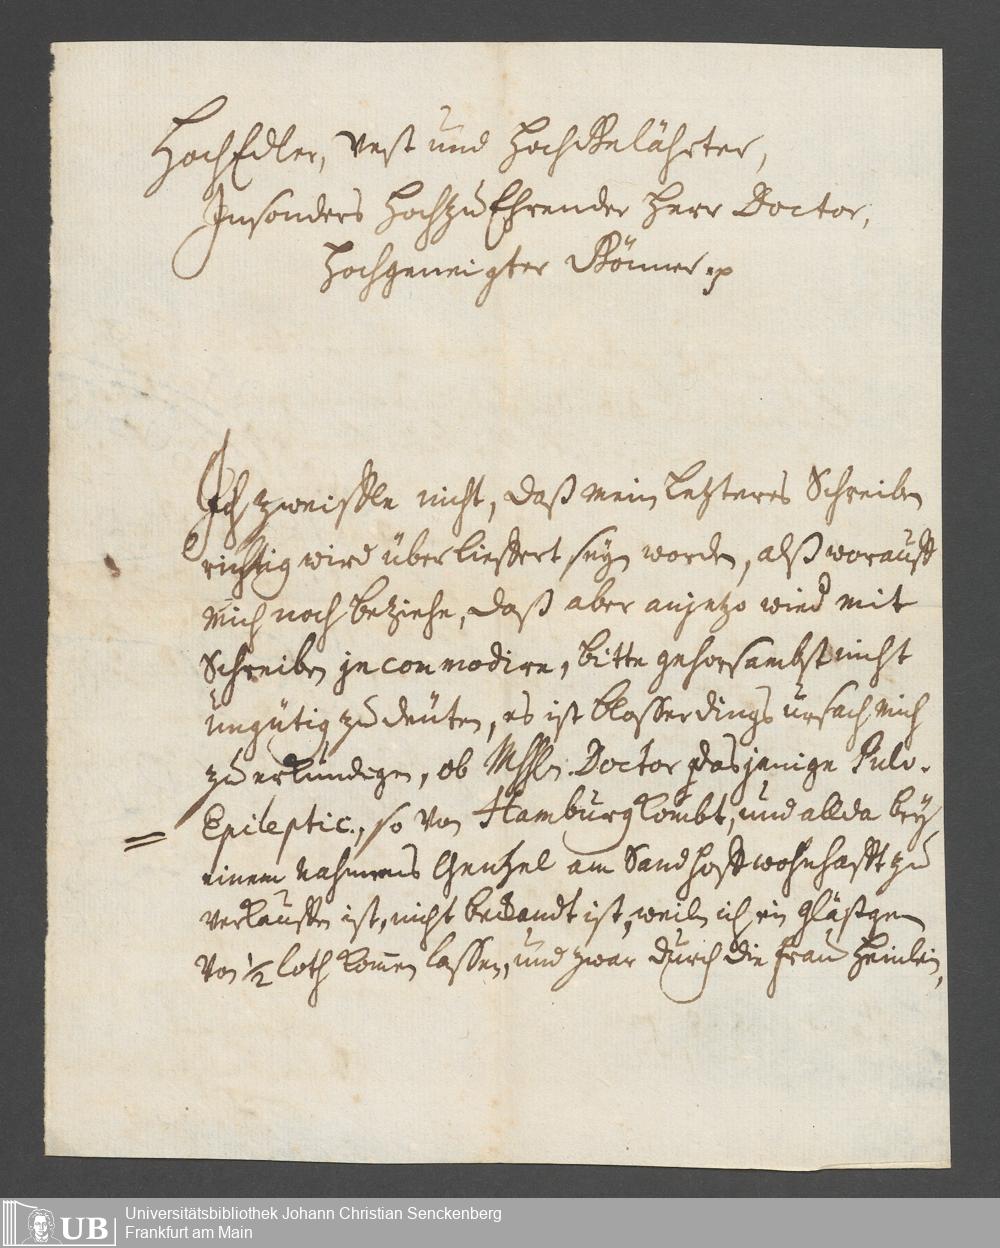 HochEdler, Vest und HochGelährter,
Insonders HochzuEhrender Herr Doctor,
Hochgeneigter Gönner p
Ich zweiffle nicht, daß mein letzteres Schreiben
richtig wird überlieffert seyn worden, alß worauff
mich noch beziehe, daß aber anjetzo wied mit
Schreiben incommodire, bitte gehorsambst nicht
ungütig zu deuten, es ist blosserdings ursach, mich
zu erkundigen, ob Doctor dasjenige Pulv.
Epileptic., so von Hamburg kombt, und allda bey
einem nahmens Gentzel am Sandhoff wohnhafft zu
verkauffen ist, nicht bekandt ist, weilen ich ein gläßgen
von 1/2 loth komen lassen, und zwar durch die Frau Heinlein,
UB
Universitätsbibliothek Johann Christian Senckenberg
Frankfurt am Main